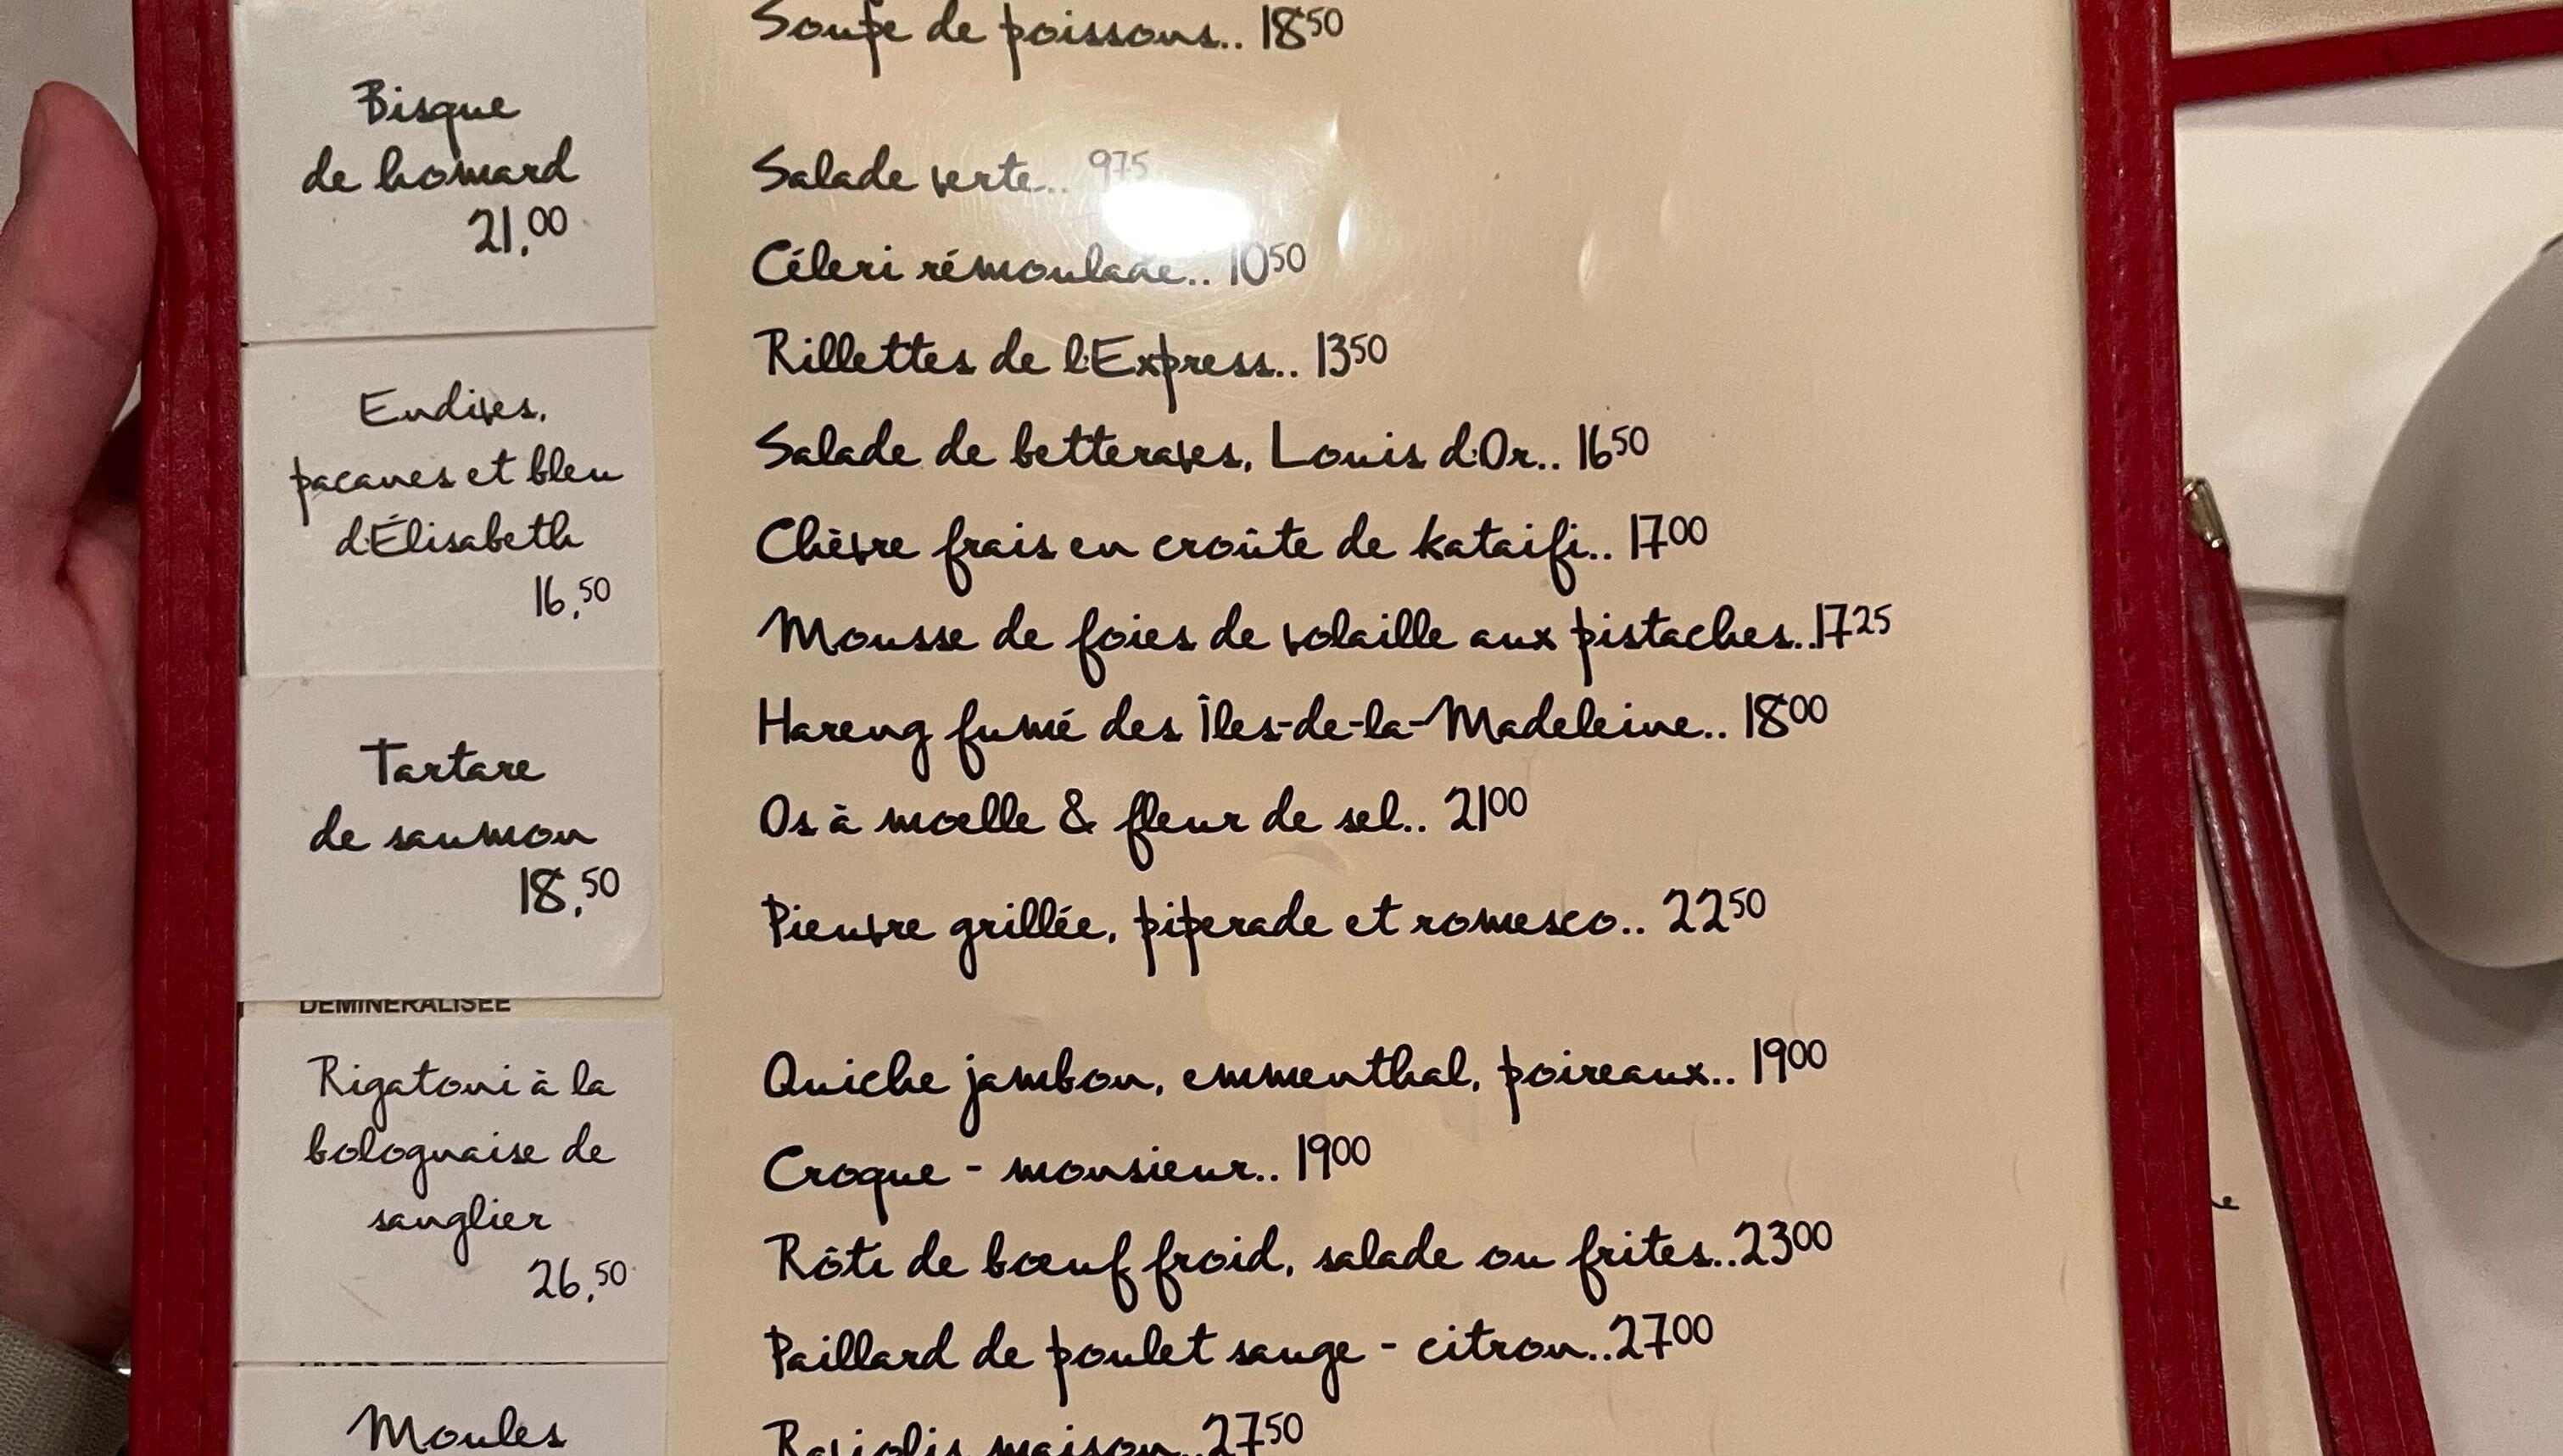 Bisque
de homard
21,00
Endives,
pacanes et bleu
d'Élisabeth
16,50
Tartare
de saumon
18,50
DÉMINÉRALISÉE
Rigatoni à la
bolognaise de
sanglier
26,50
Moules
Soupe de poissons.. 1850
Salade verte.. 975
Céleri rémoulade.. 1050
Rillettes de l'Express.. 1350
Salade de betteraves, Louis d'Or.. 1650
Chèvre frais en croûte de kataifi.. 1700
Mousse de foies de volaille aux pistaches..1725
Hareng fumé des Îles-de-la-Madeleine.. 1800
Os à moelle & fleur de sel.. 2100
Pieuvre grillée, piperade et romesco.. 2250
Quiche jambon, emmenthal, poireaux.. 1900
Croque - monsieur.. 1900
Rôti de bœuf froid, salade ou frites..2300
Paillard de poulet sauge - citron..2700
Raviolis maison..2750